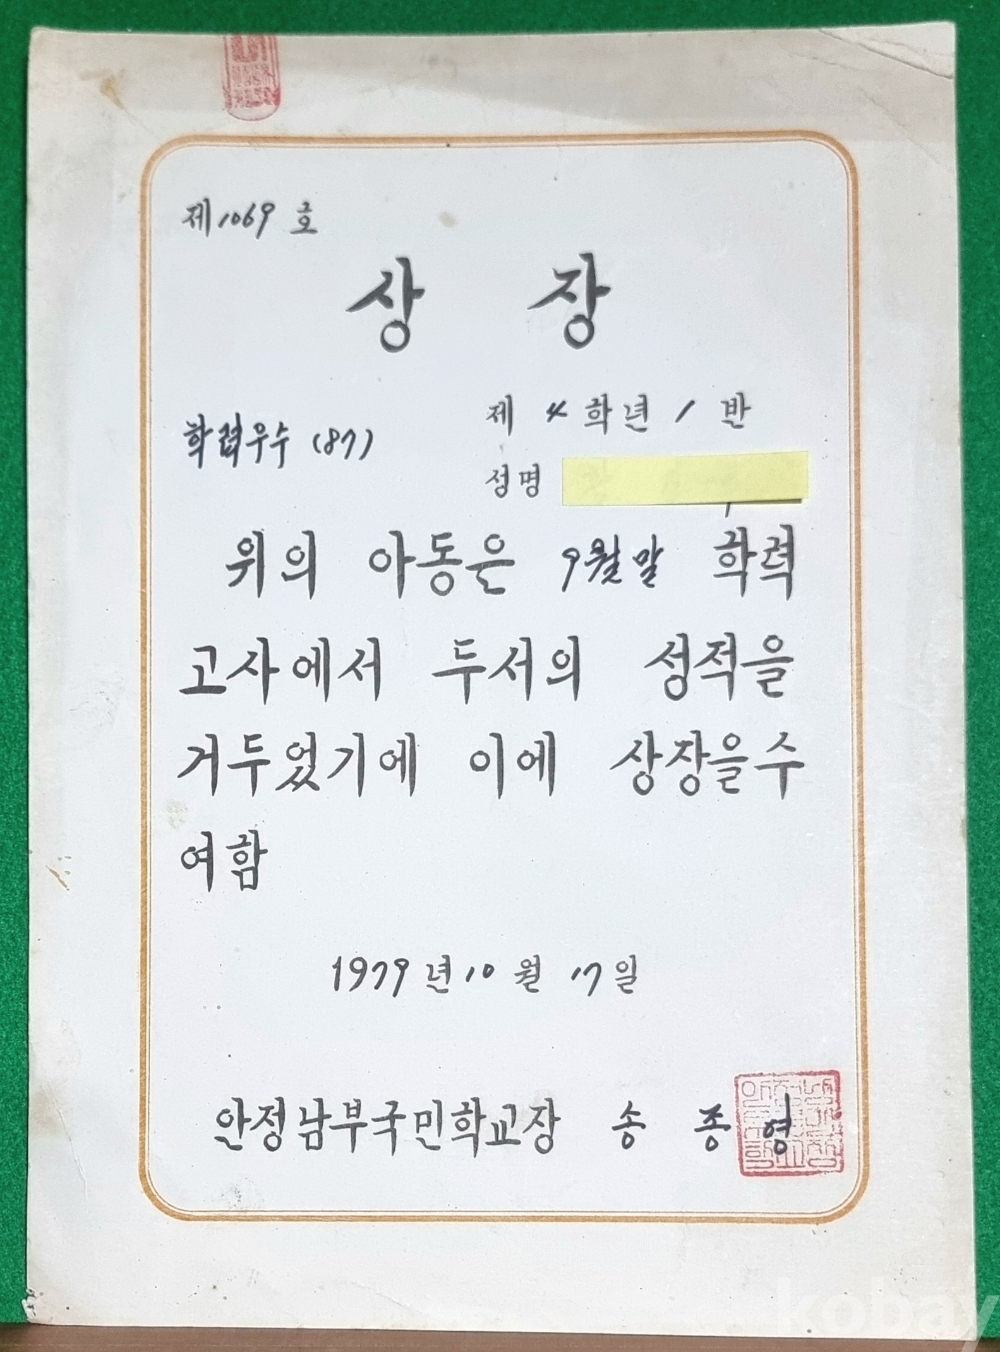 제1069 호
상 장
학력우수 (87)
제 4 학년 1 반
성명
위의 아동은 9월말 학력
고사에서 두서의 성적을
거두었기에 이에 상장을수
여함
1979년10월 17일
안정남부국민학교장 송 종 영
kobay